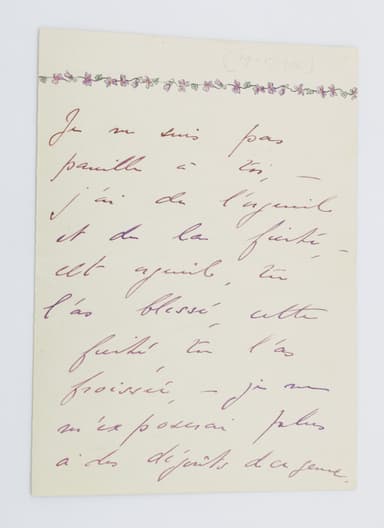 Je ne suis pas
pareille à toi, —
j'ai de l'orgueil
et de la fierté, —
cet orgueil, tu
l'as blessé, cette
fierté, tu l'as
froissée, — je ne
m'exposerai plus
à des dégoûts de ce genre.